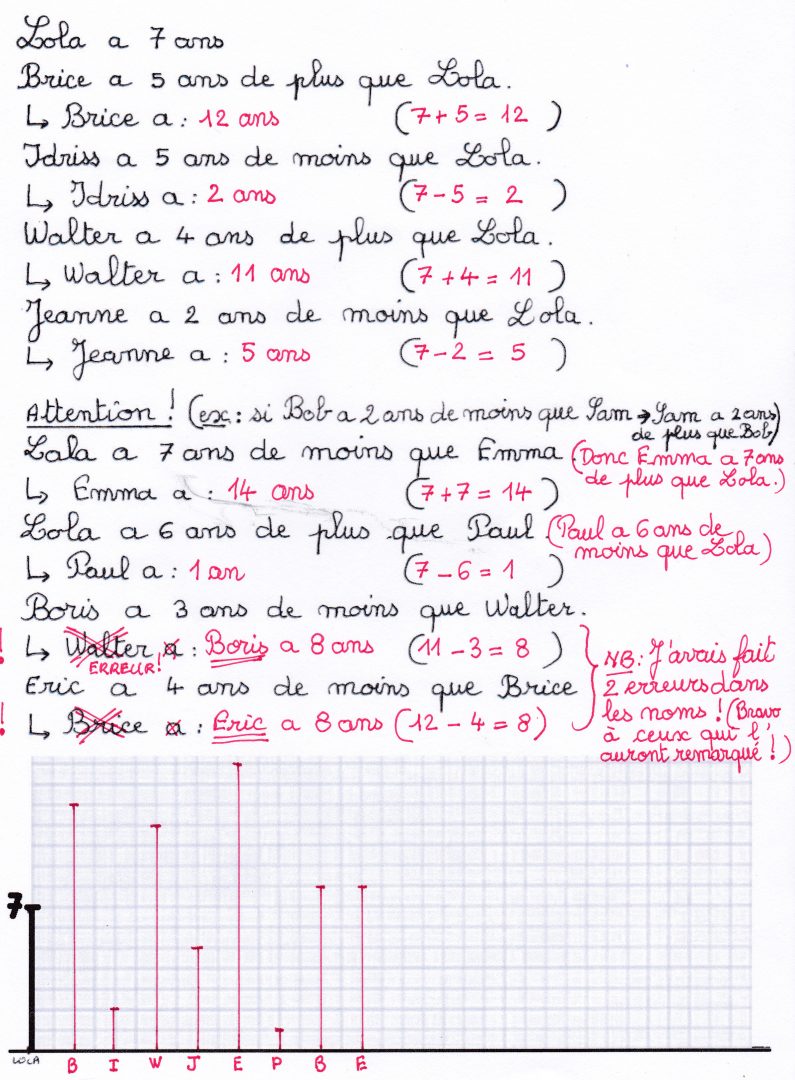 Lola a 7 ans
Brice a 5 ans de plus que Lola.
↳ Brice a : 12 ans (7+5 = 12 )
Idriss a 5 ans de moins que Lola.
↳ Idriss a : 2 ans (7-5 = 2 )
Walter a 4 ans de plus que Lola.
↳ Walter a : 11 ans (7+4 = 11 )
Jeanne a 2 ans de moins que Lola.
↳ Jeanne a : 5 ans (7-2 = 5 )
Attention ! (ex : si Bob a 2 ans de moins que Sam → Sam a 2 ans
de plus que Bob)
Lala a 7 ans de moins que Emma. (Donc Emma a 7 ans
de plus que Lola.)
↳ Emma a : 14 ans (7+7 = 14 )
Lola a 6 ans de plus que Paul. (Paul a 6 ans de
moins que Lola)
↳ Paul a : 1 an (7-6 = 1 )
Boris a 3 ans de moins que Walter.
! ↳ Walter a : Boris a 8 ans (11-3 = 8 )
ERREUR!
Eric a 4 ans de moins que Brice
! ↳ Brice a : Eric a 8 ans (12-4 = 8)
NB : J'avais fait
2 erreurs dans
les noms ! (Bravo
à ceux qui l'
auront remarqué !)
7
LOLA B I W J E P B E